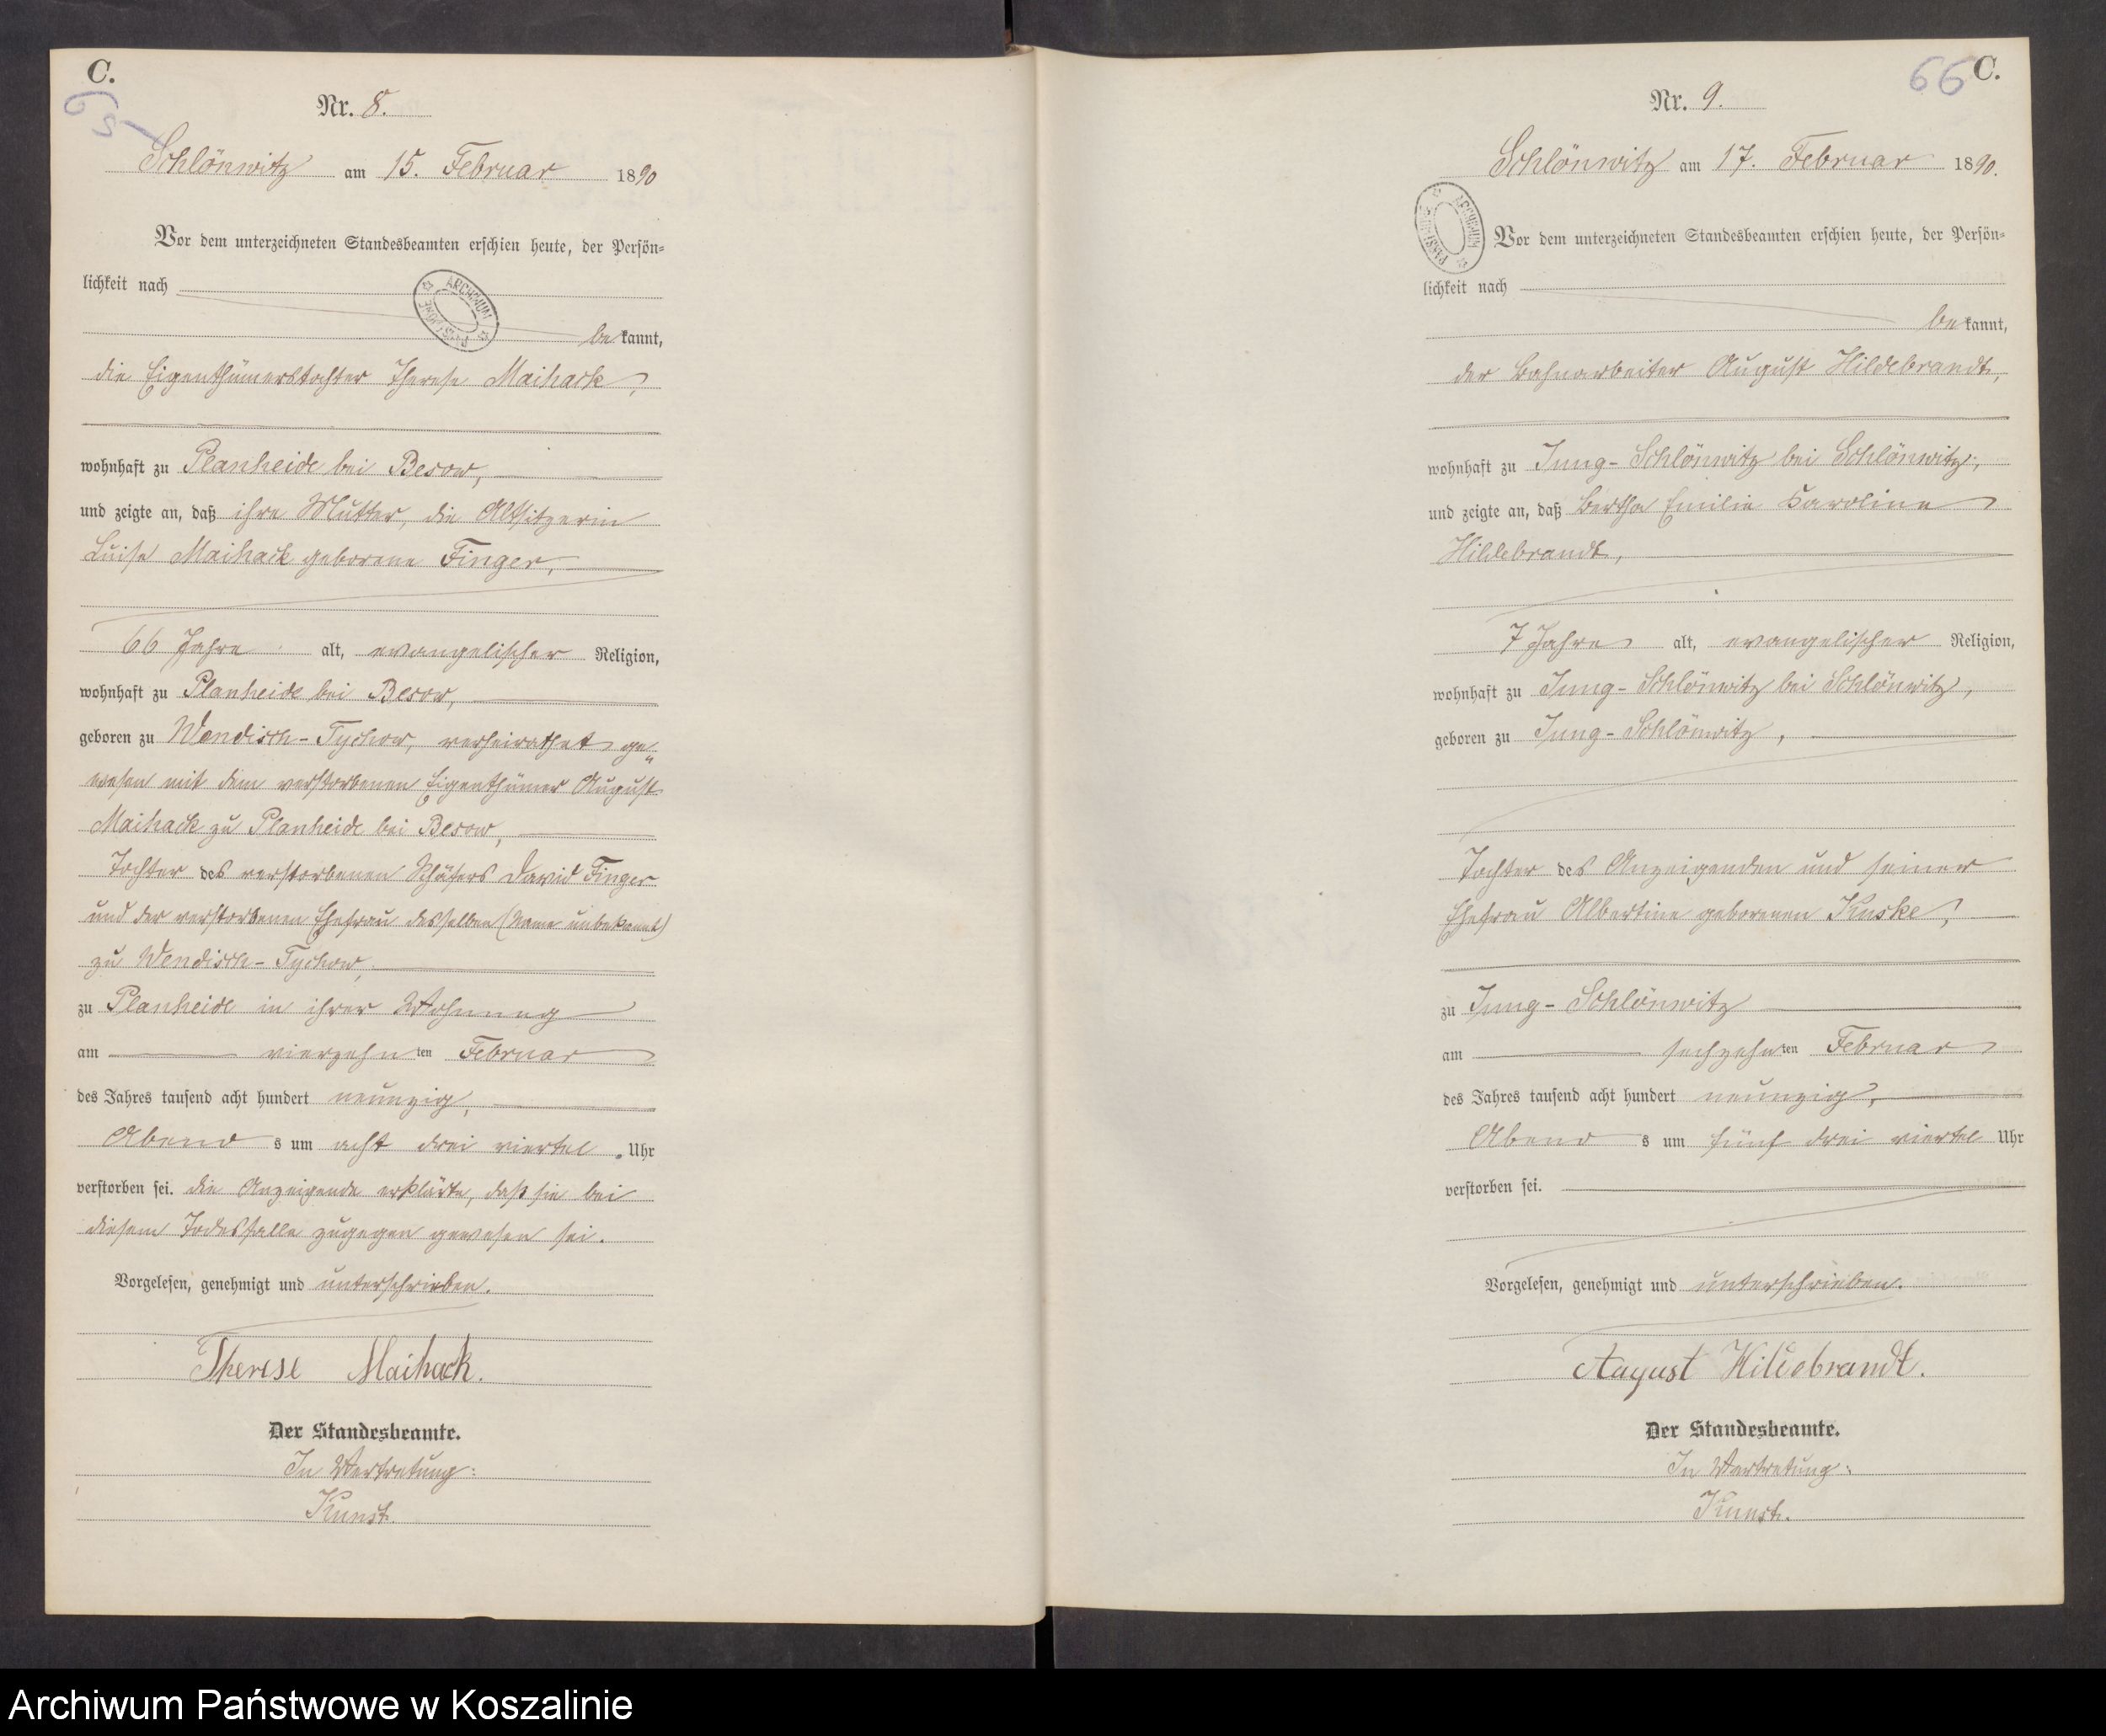 C.
65
Nr. 8.
Schlönwitz am 15. Februar 1890
Vor dem unterzeichneten Standesbeamten erschien heute, der Persön-
lichkeit nach
ARCHIWUM PAŃSTWOWE
bekannt,
die Eigenthümerstochter Therese Maihack,
wohnhaft zu Planheide bei Besow,
und zeigte an, daß ihre Mutter, die Altsitzerin
Luise Maihack geborene Finger,
66 Jahre alt, evangelischer Religion,
wohnhaft zu Planheide bei Besow,
geboren zu Wendisch-Tychow, verheirathet ge„
wesen mit dem verstorbenen Eigenthümer August
Maihack zu Planheide bei Besow,
Tochter des verstorbenen Schäfers David Finger
und der verstorbenen Ehefrau desselben (Name unbekannt)
zu Wendisch-Tychow,
zu Planheide in ihrer Wohnung
am vierzehnten Februar
des Jahres tausend acht hundert neunzig,
Abends um acht drei viertel Uhr
verstorben sei. die Anzeigende erklärte, daß sie bei
diesem Todesfalle zugegen gewesen sei.
Vorgelesen, genehmigt und unterschrieben.
Therese Maihack.
Der Standesbeamte.
In Vertretung:
Kunst.
66 C.
Nr. 9.
Schlönwitz am 17. Februar 1890.
ARCHIWUM PAŃSTWOWE
Vor dem unterzeichneten Standesbeamten erschien heute, der Persön-
lichkeit nach
bekannt,
der Bahnarbeiter August Hildebrandt,
wohnhaft zu Jung-Schlönwitz bei Schlönwitz,
und zeigte an, daß Bertha Emilie Karoline
Hildebrandt,
7 Jahre alt, evangelischer Religion,
wohnhaft zu Jung-Schlönwitz bei Schlönwitz,
geboren zu Jung-Schlönwitz,
Tochter des Anzeigenden und seiner
Ehefrau Albertine geborenen Kuske,
zu Jung-Schlönwitz
am sechzehnten Februar
des Jahres tausend acht hundert neunzig,
Abends um fünf drei viertel Uhr
verstorben sei.
Vorgelesen, genehmigt und unterschrieben.
August Hildebrandt.
Der Standesbeamte.
In Vertretung:
Kunst.
Archiwum Państwowe w Koszalinie